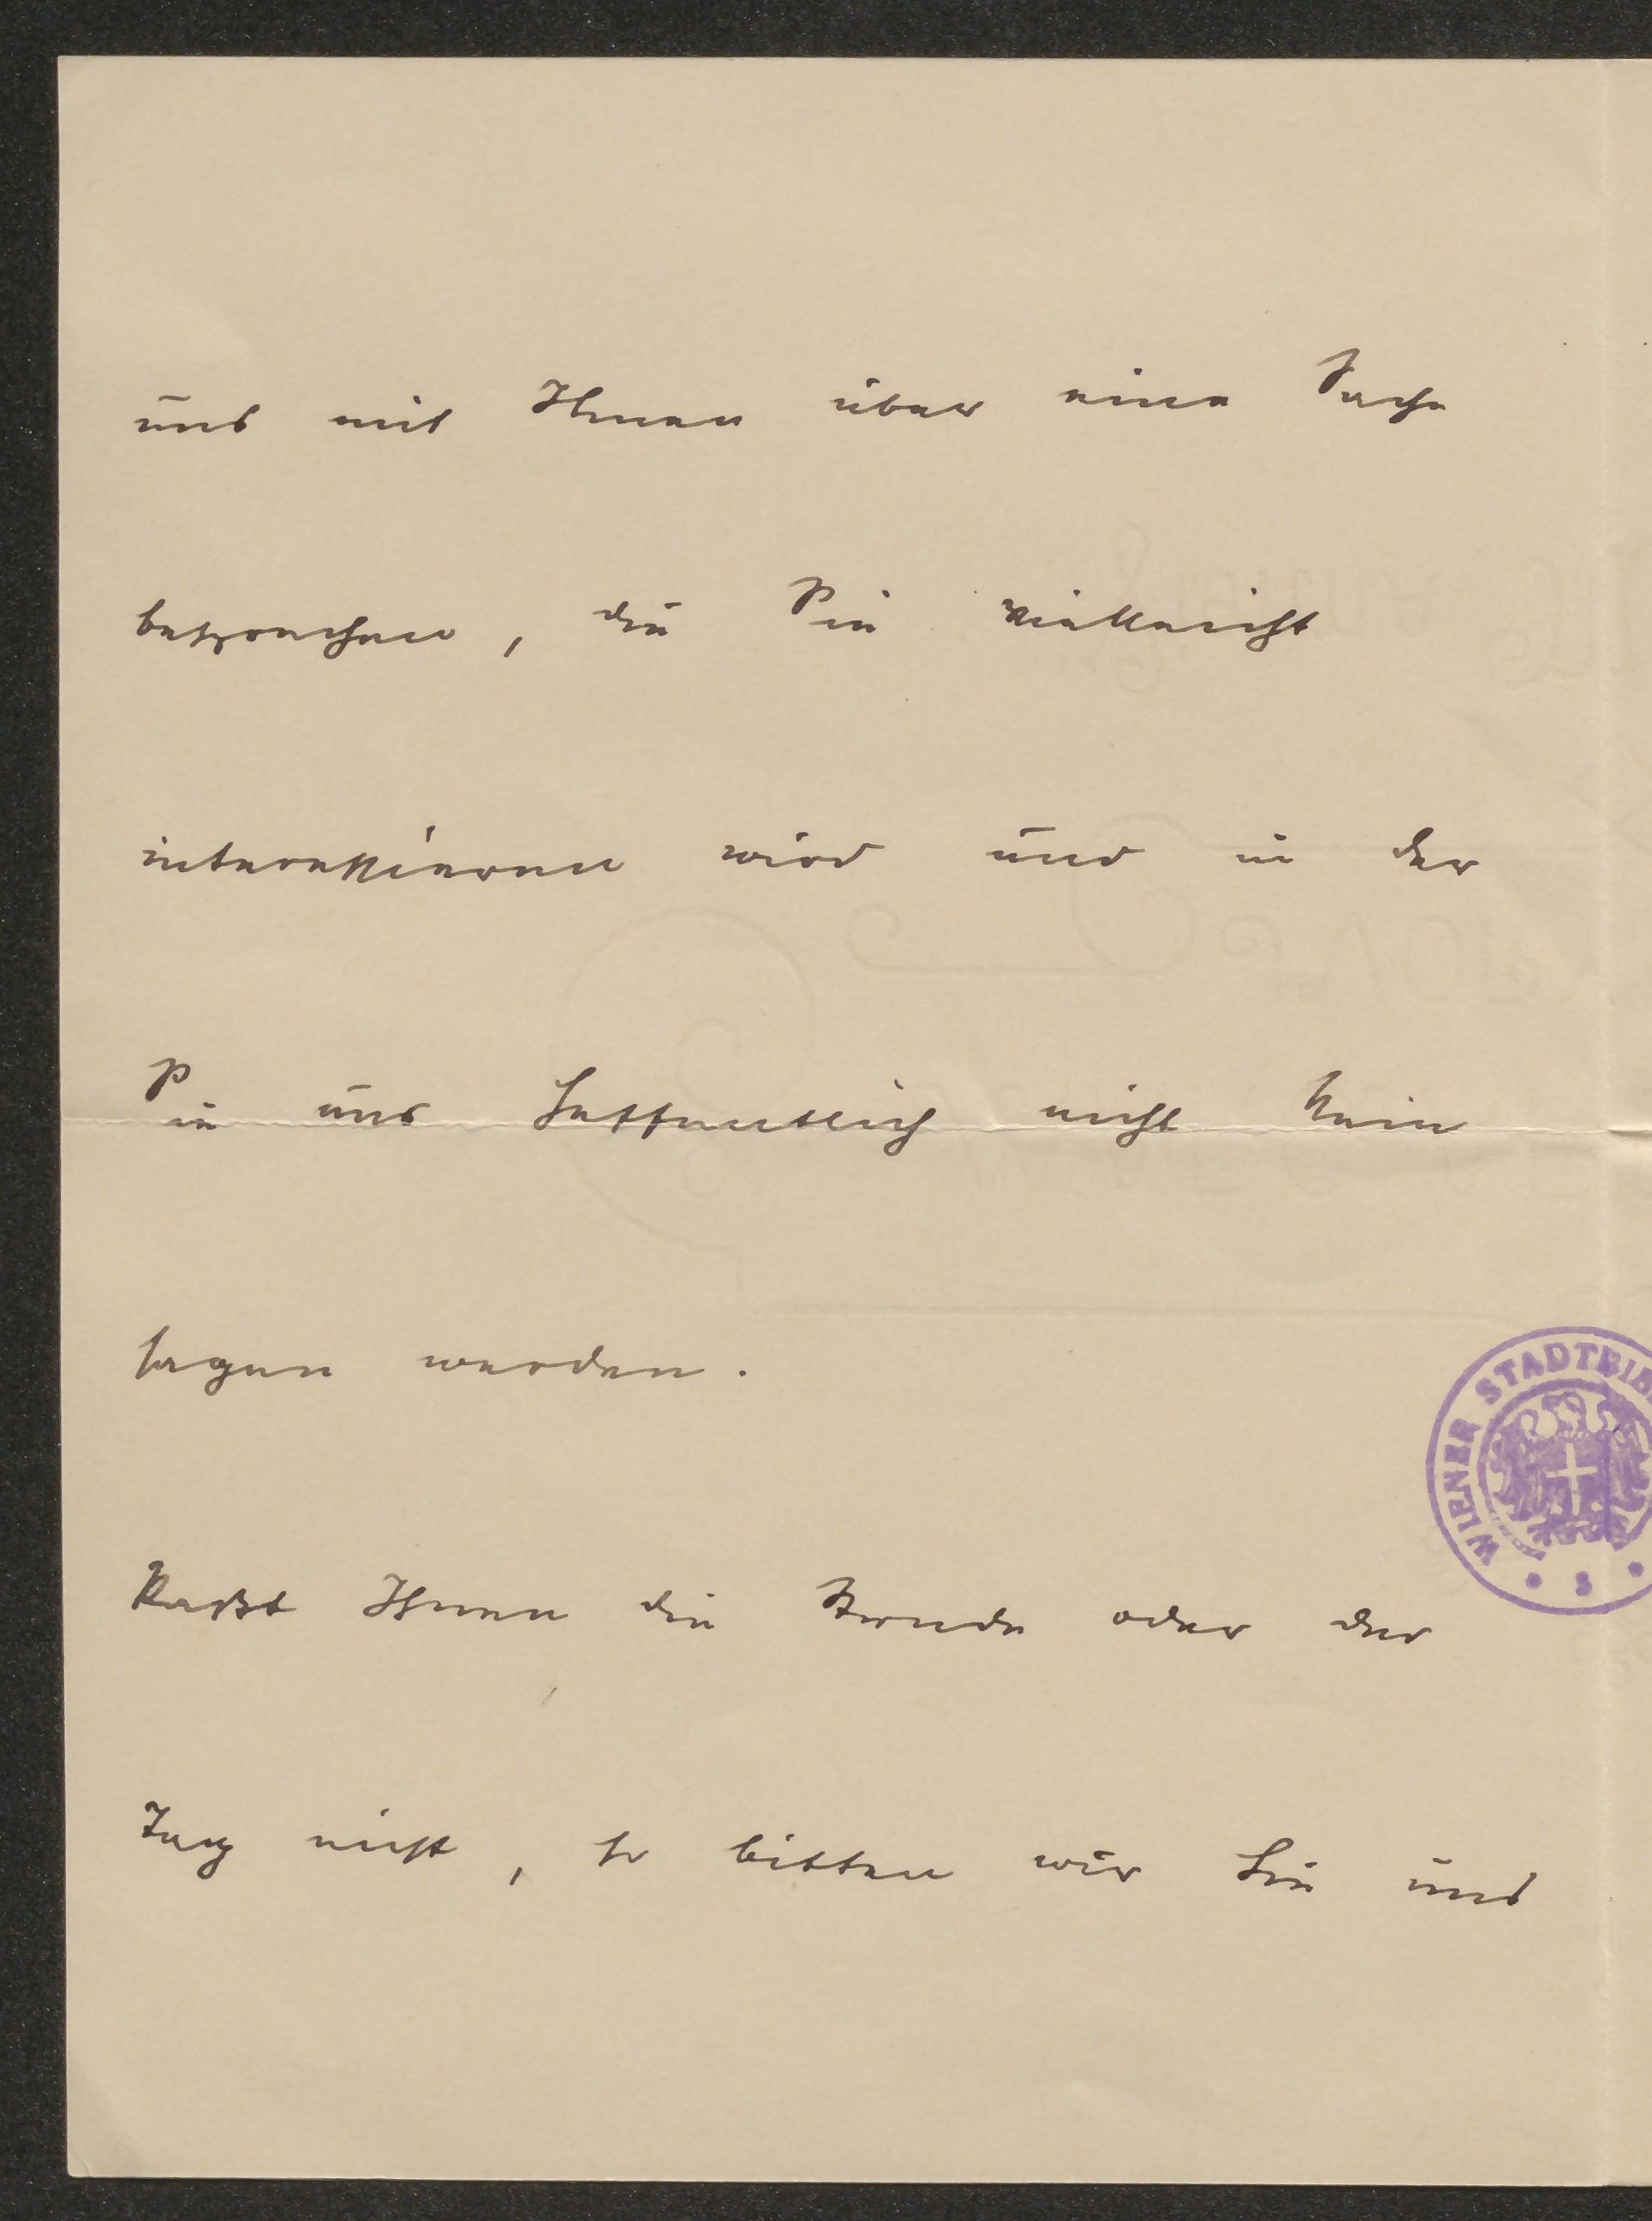 uns mit Ihnen über eine Sache
besprechen, die Sie vielleicht
interessieren wird und in der
Sie uns hoffentlich nicht Nein
sagen werden.
Passt Ihnen die Stunde oder der
Tag nicht, so bitten wir Sie uns
WIENER STADTBIB